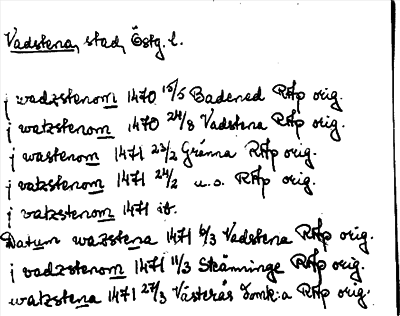 Vadstena, stad, Östg. l.
j wadzstenom 1470 15/5 Badened RAp orig.
j watzstenom 1470 24/8 Vadstena RAp orig.
j wastenom 1471 23/2 Gränna RAp orig.
j vatzstenom 1471 24/2 u.o. RAp orig.
j vatzstenom 1471 it.
Datum wazstena 1471 6/3 Vadstena RAp orig.
j vadzstenom 1471 11/3 Skänninge RAp orig.
watzstena 1471 27/3 Västerås domk:a RAp orig.